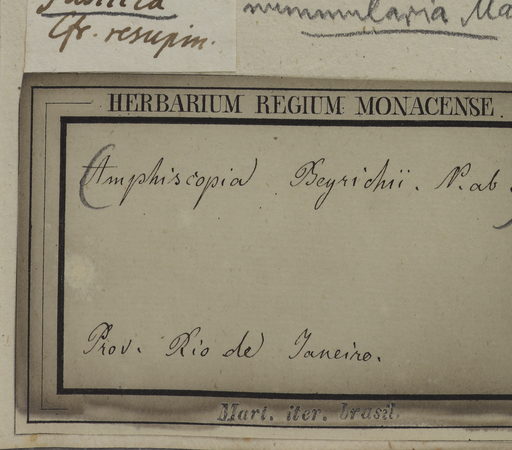 Cfr. resupin.
nummularia Ma
HERBARIUM REGIUM MONACENSE
(Amphiscopia Beyrichii. N. ab
Prov. Rio de Janeiro.
Mart. iter. brasil.